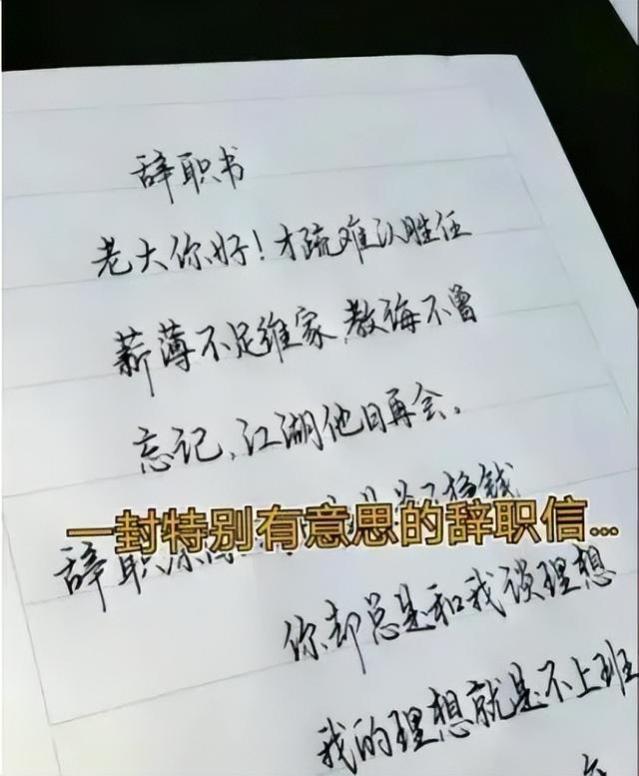 辞职书
老大你好!才疏难以胜任
薪薄不足维家,教诲不曾
忘记,江湖他日再会。
一封特别有意思的辞职信...
辞职
挣钱
你却总是和我谈理想
我的理想就是不上班